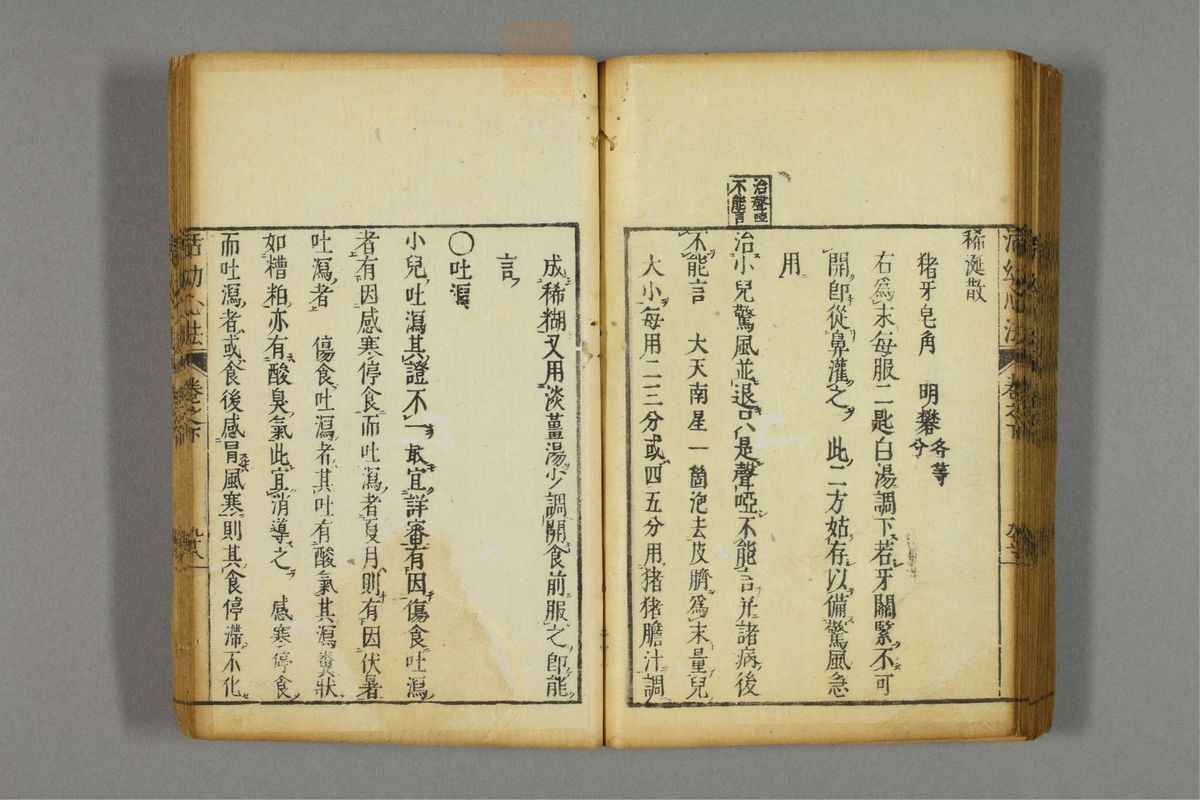 稀涎散
猪牙皂角　明礬各等分
右爲末每服二匙白湯調下若牙關緊不可
開即從鼻灌之　此二方姑存以備驚風急
用
治聲啞不能言
治小兒驚風並退只是聲啞不能言并諸病後
不能言　大天南星一箇泡去皮臍爲末量兒
大小每用二三分或四五分用猪猪膽汁調
成稀糊又用淡薑湯少調開食前服之即能
言
〇吐瀉
小兒吐瀉其證不一最宜詳審有因傷食吐瀉
者有因感寒停食而吐瀉者夏月則有因伏暑
吐瀉者　傷食吐瀉者其吐有酸氣其瀉糞狀
如糟粕亦有酸臭氣此宜消導之　感寒停食
而吐瀉者或食後感冒風寒則其食停滯不化
活幼心法
卷之下